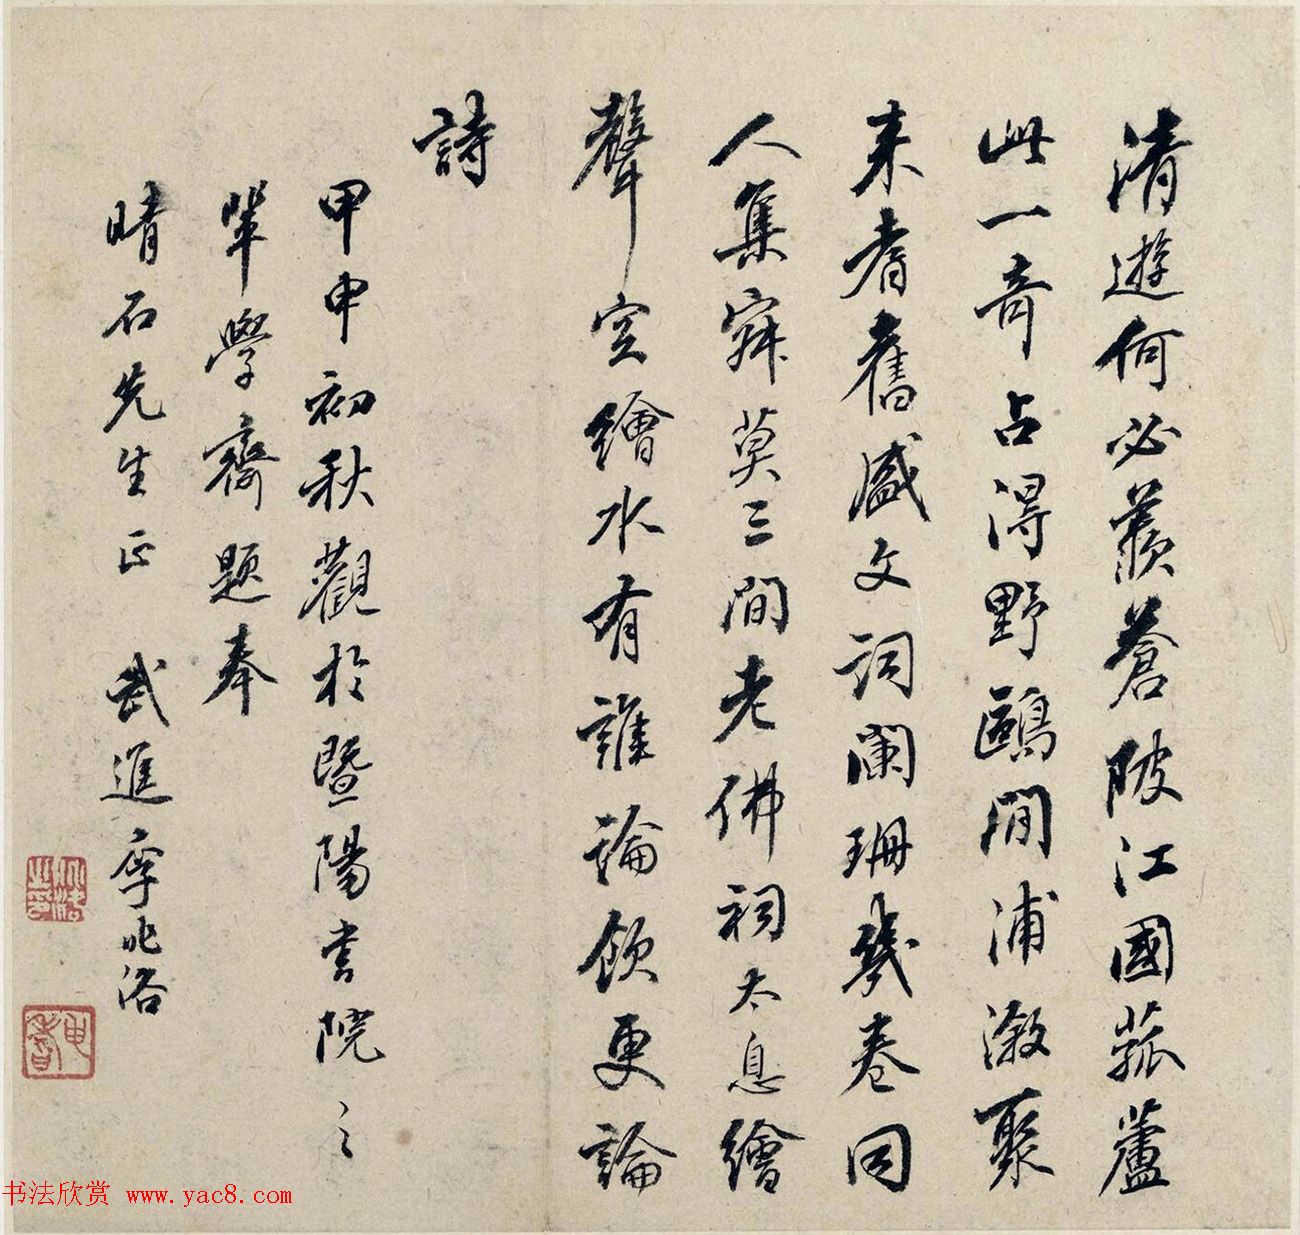 清遊何必羨蒼陂江國菰蘆
此一奇占得野鷗閒浦漵聚
来耆舊盛文詞闌珊幾卷同
人集寂莫三間老佛祠太息繪
聲空繪水有誰論飲更論
詩
甲申初秋觀於暨陽書院之
輩學齋題奉
晴石先生正 武進李兆洛
书法欣赏 www.yac8.com